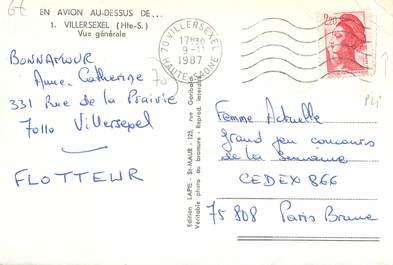 6€
EN AVION AU-DESSUS DE...
1. VILLERSEXEL (Hte-S.)
Vue générale
BONNAMOUR
Anne. Catherine
331 Rue de la Prairie
70110 Villersexel
FLOTTEUR
70 VILLERSEXEL
17H30
9-11
1987
HAUTE-SAONE
2,20
70
Pli
Edition LAPIE - St-MAUR - 123, rue Garibaldi
Véritable photo au bromure - Reprod. interdite
Femme Actuelle
Grand jeu concours
de la Semaine
CEDEX 866
75808 Paris Brune